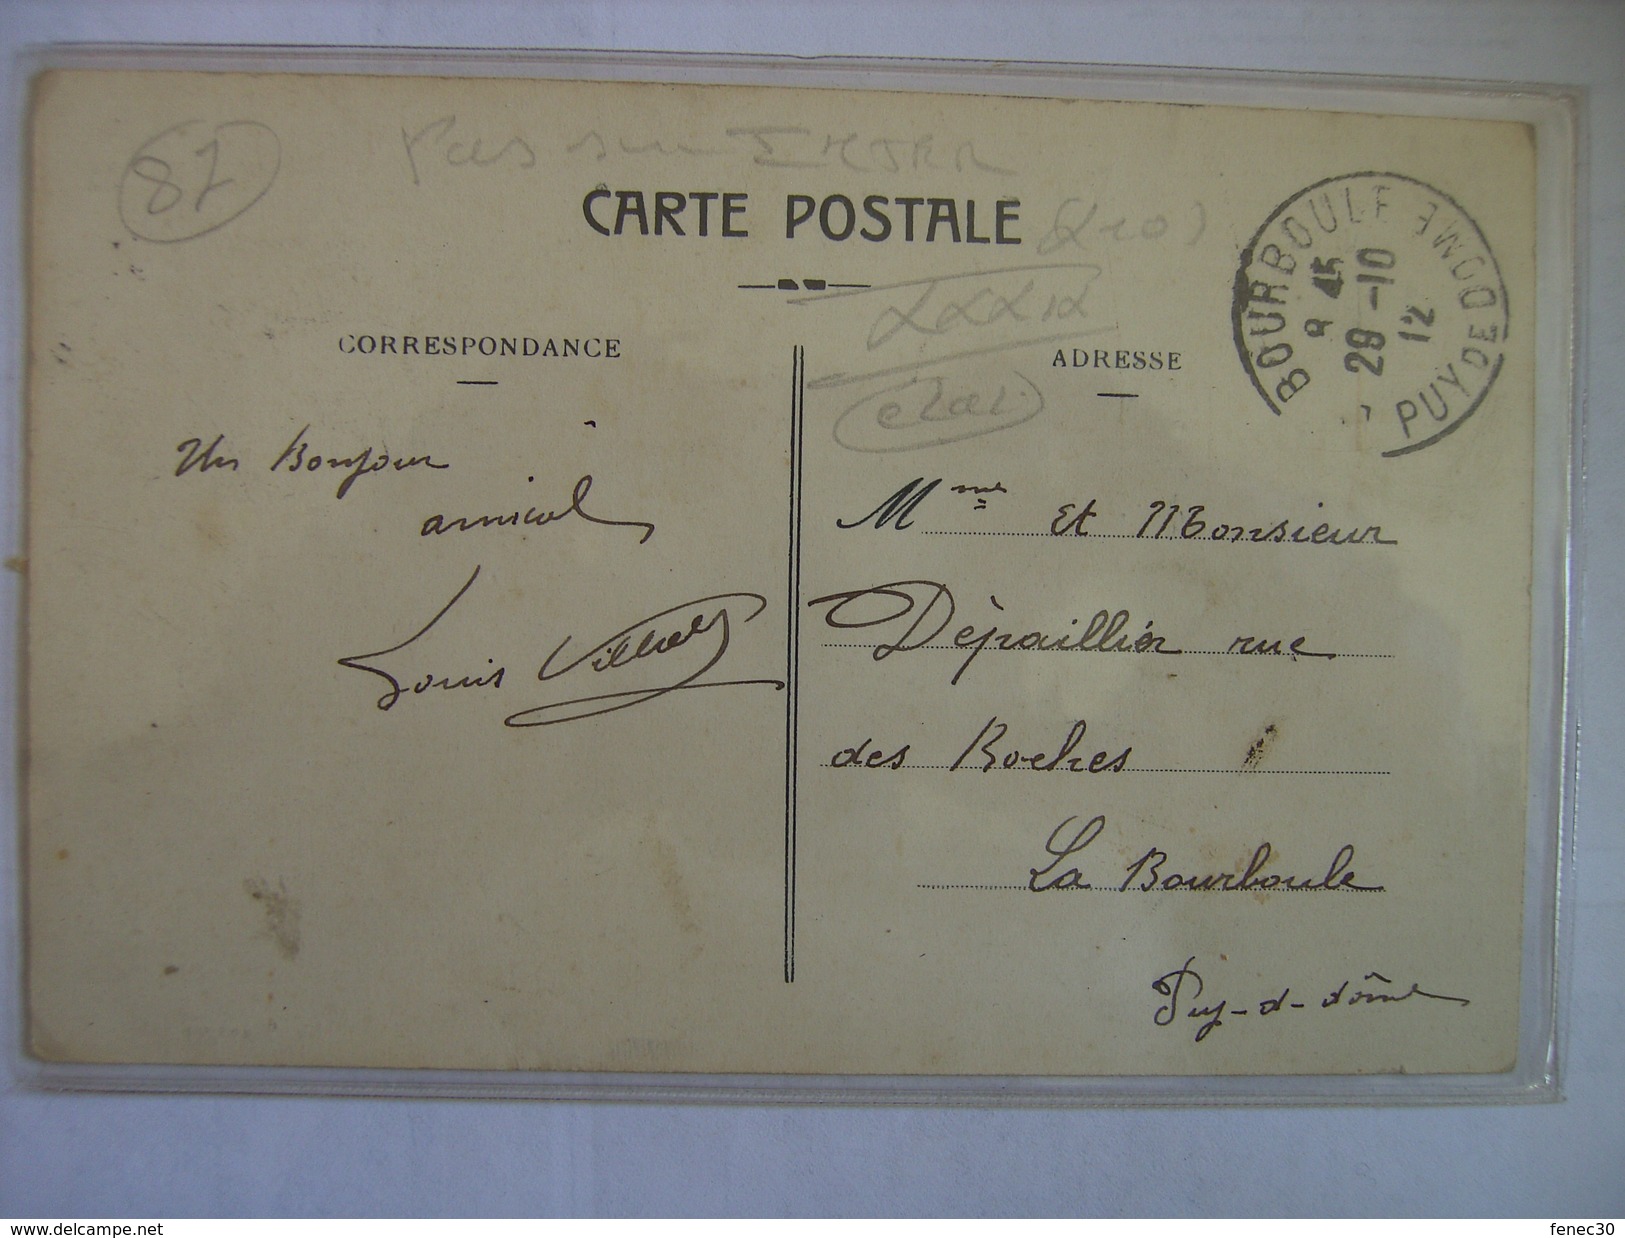 87
Pas sur
CARTE POSTALE
CORRESPONDANCE
ADRESSE
BOURBOULE PUY DE DOME
8 45
29-10
12
Un Bonjour
amical
Louis
Mme et Monsieur
Dépaillier rue
des Roches
La Bourboule
Puy-d-dôme
www.delcampe.net
fenec30